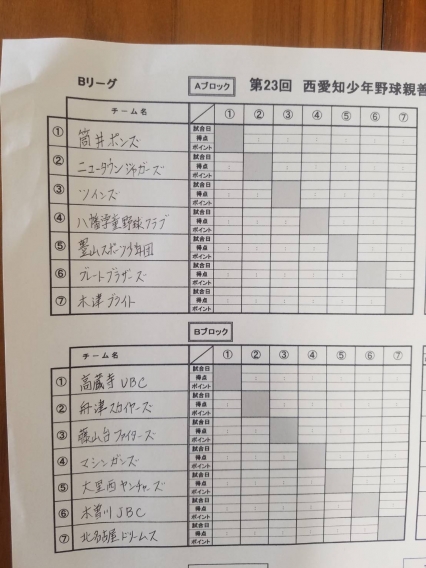 Bリーグ Aブロック 第23回 西愛知少年野球親善
チーム名 ① ② ③ ④ ⑤ ⑥ ⑦
① 筒井ボンズ 試合日 得点 ポイント
② ニュータウンジャガーズ 試合日 得点 ポイント
③ ツインズ 試合日 得点 ポイント
④ 八幡学童野球クラブ 試合日 得点 ポイント
⑤ 豊山スポーツ少年団 試合日 得点 ポイント
⑥ ブレートブラザーズ 試合日 得点 ポイント
⑦ 木津ブライト 試合日 得点 ポイント
Bブロック
チーム名 ① ② ③ ④ ⑤ ⑥ ⑦
① 高蔵寺VBC 試合日 得点 ポイント
② 舟津スカイヤーズ 試合日 得点 ポイント
③ 藤山台ファイターズ 試合日 得点 ポイント
④ マシンガンズ 試合日 得点 ポイント
⑤ 大里西ヤンチャーズ 試合日 得点 ポイント
⑥ 木曽川JBC 試合日 得点 ポイント
⑦ 北名古屋ドリームス 試合日 得点 ポイント